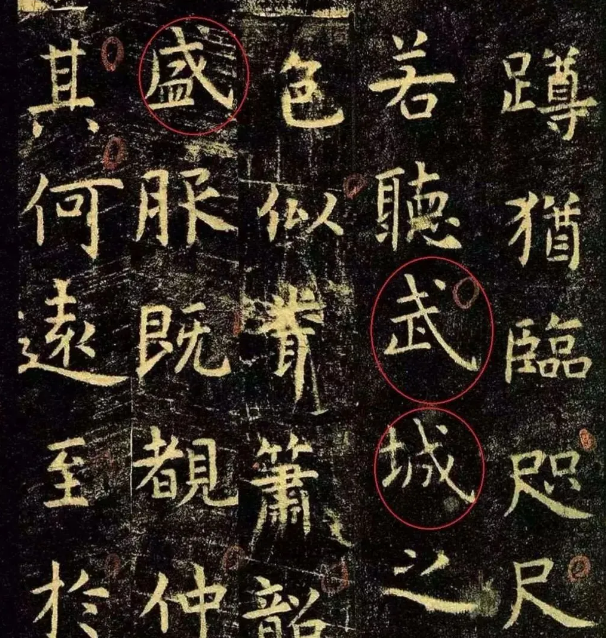 蹲猶臨咫尺
若聽武城之
色似簫韶
盛服既覩仲
其何遠至於